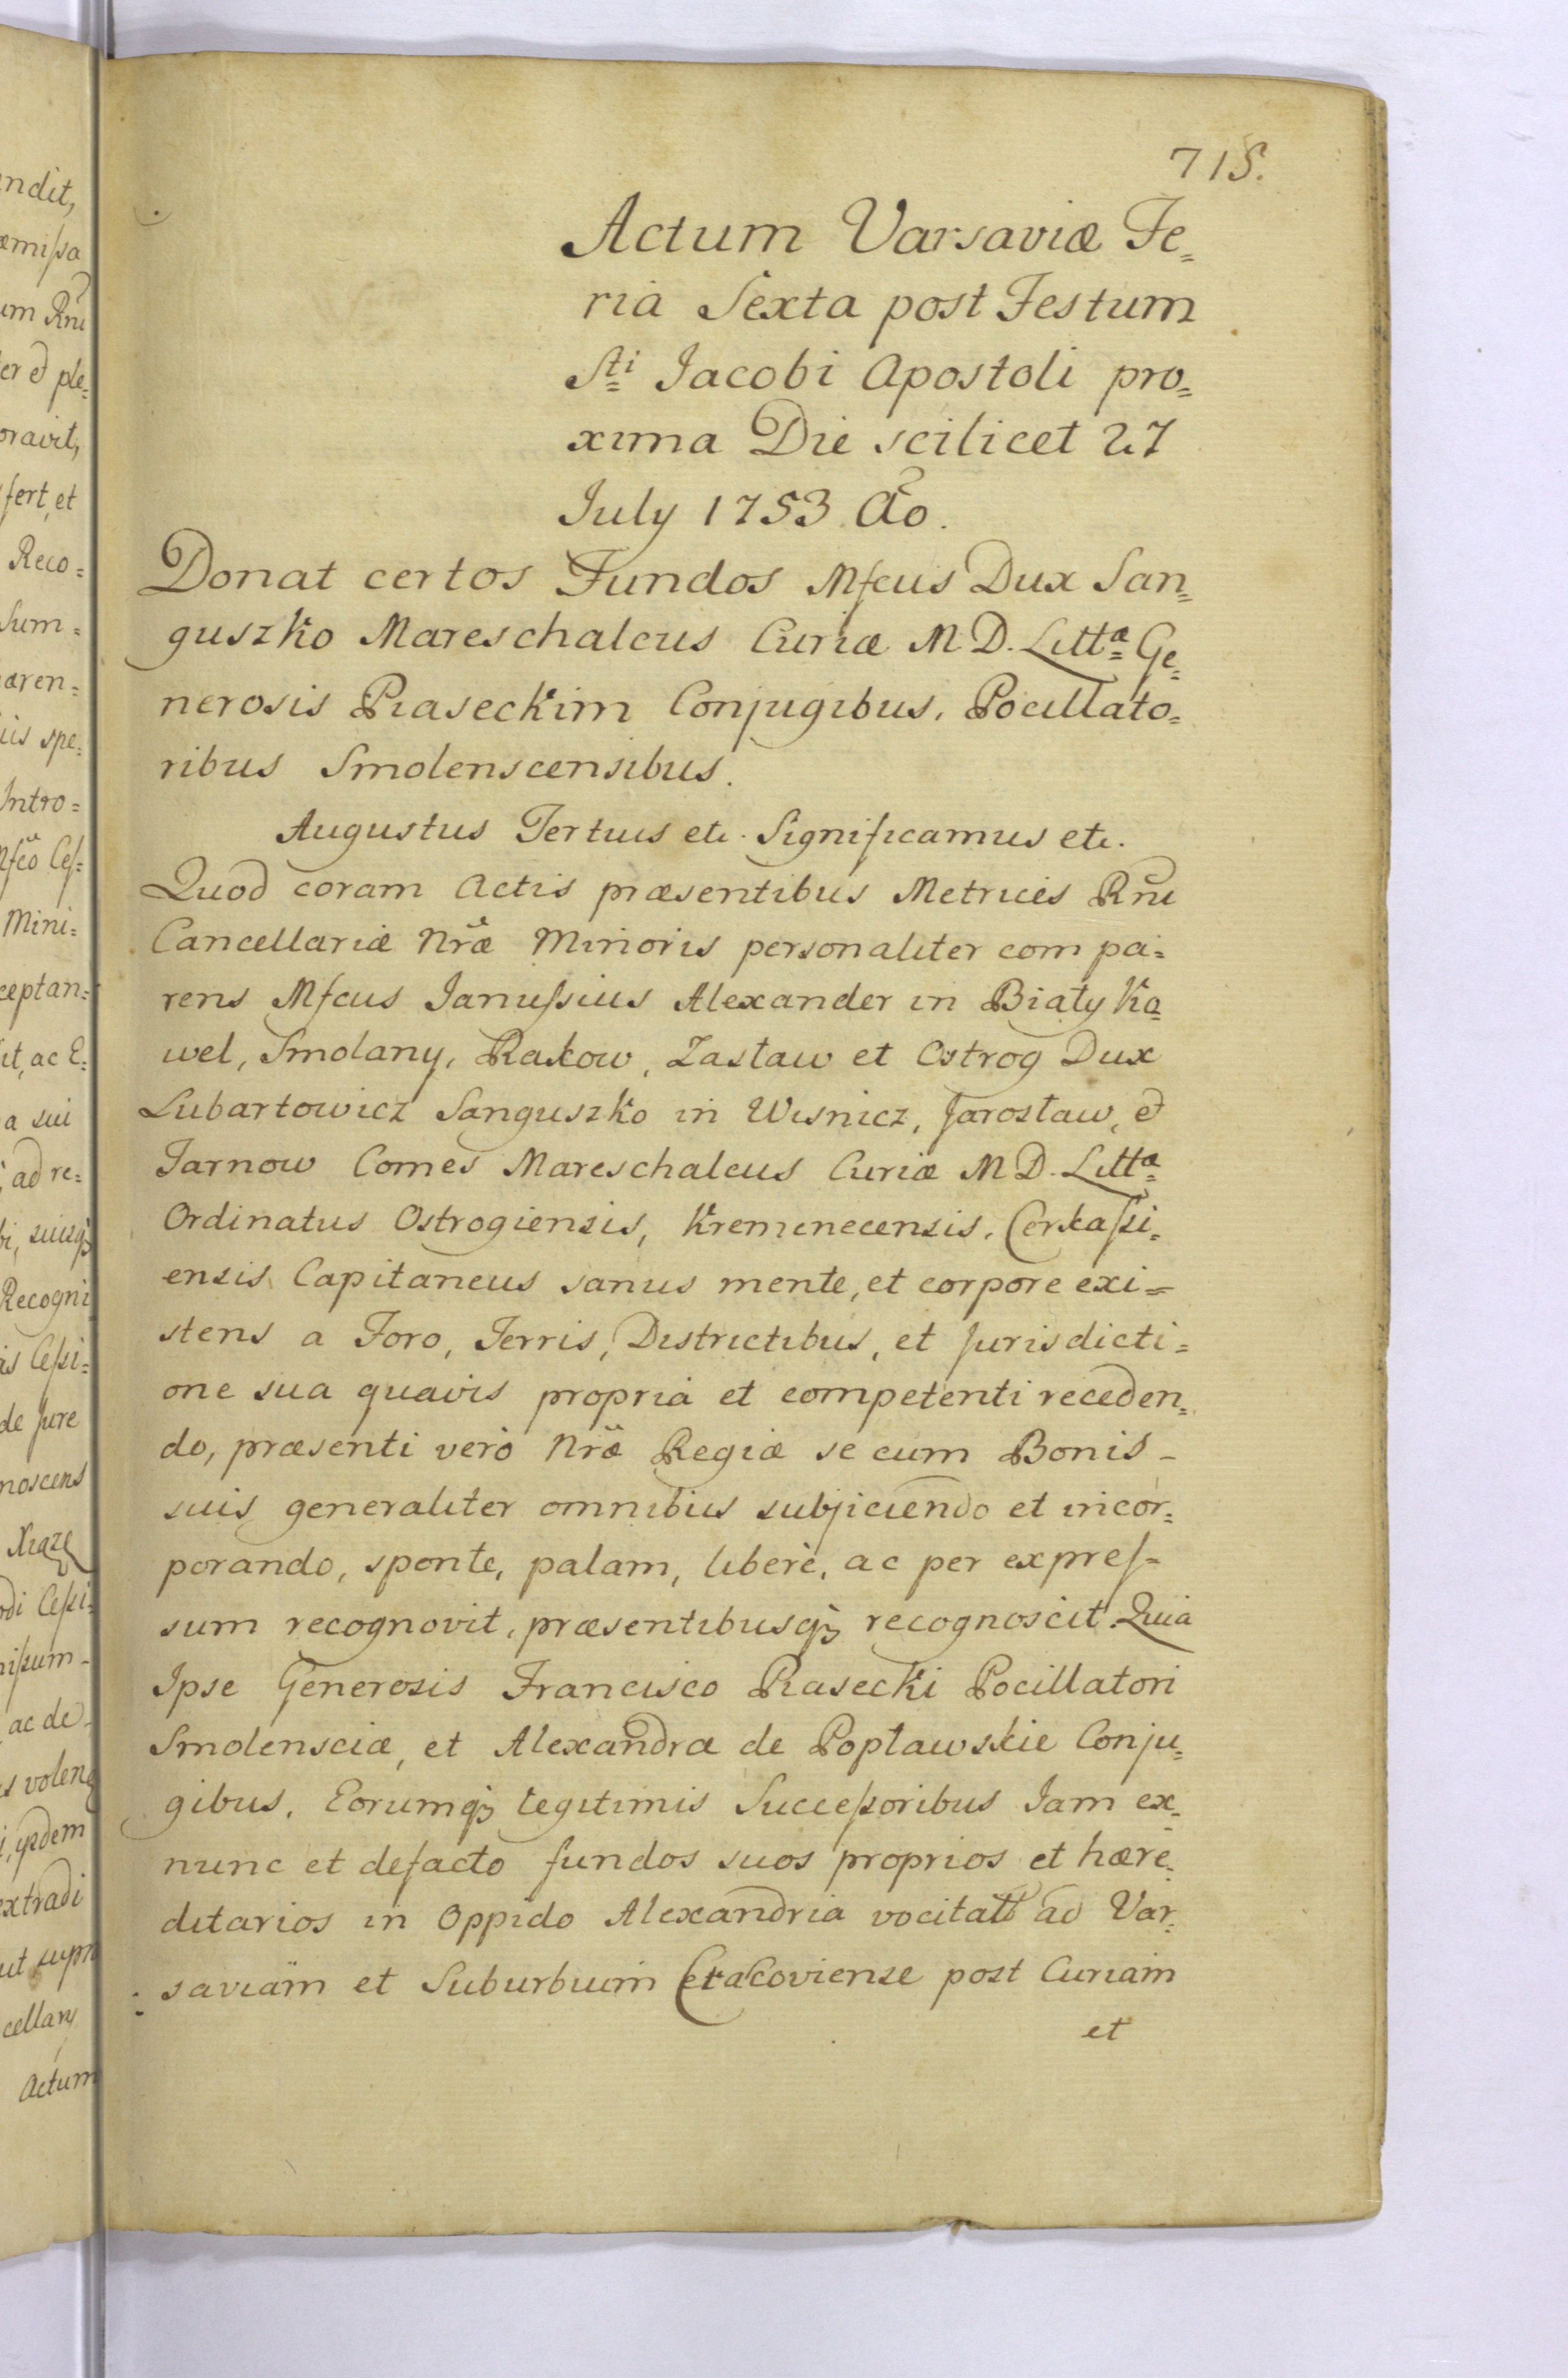 715.
Actum Varsaviæ Fe=
ria Sexta post Festum
Sti Jacobi Apostoli pro=
xima Die scilicet 27
July 1753 Ao.
Donat certos Fundos Mfcus Dux San=
guszko Mareschalcus Curiæ M D. Litta Ge=
nerosis Piaseckim Conjugibus, Pocillato=
ribus Smolenscensibus.
Augustus Tertius etc. Significamus etc.
Quod coram Actis præsentibus Metrices Rni
Cancellariæ Nræ Minoris personaliter compa=
rens Mfcus Janussius Alexander in Biały Ko=
wel, Smolany, Rakow, Zasław et Ostrog Dux
Lubartowicz Sanguszko in Wisnicz, Jarosław, et
Tarnow Comes Mareschalcus Curiæ M D. Litta
Ordinatus Ostrogiensis, Kremenecensis, Cerkassi=
ensis Capitaneus sanus mente, et corpore exi=
stens a Foro, Terris, Districtibus, et Jurisdicti=
one sua quavis propria et competenti receden=
do, præsenti verò Nræ Regiæ se cum Bonis -
suis generaliter omnibus subjiciendo et incor=
porando, sponte, palam, liberè, ac per expres=
sum recognovit, præsentibusq; recognoscit. Quia
Ipse Generosis Francisco Piasecki Pocillatori
Smolensciæ, et Alexandræ de Popławskie Conju=
gibus, Eorumq; legitimis Successoribus Jam ex=
nunc et defacto fundos suos proprios et hære=
ditarios in Oppido Alexandria vocitatt ad Var=
saviam et Suburbium Cracoviense post Curiam
et
ndit,
æmissa
um Rni
er et ple=
oravit,
fert, et
Reco=
Sum=
æren=
iis spe=
Intro=
Mfco Ces=
Mini=
ceptan=
it, ac E=
a sui
ad re=
bi, suisq;
Recogni
is Cessi=
de Jure
noscens
Xiąze
odi Cessi=
nissum -
ac de
s volens
i, ipsdem
extradi
ut supra
cellary
Actum